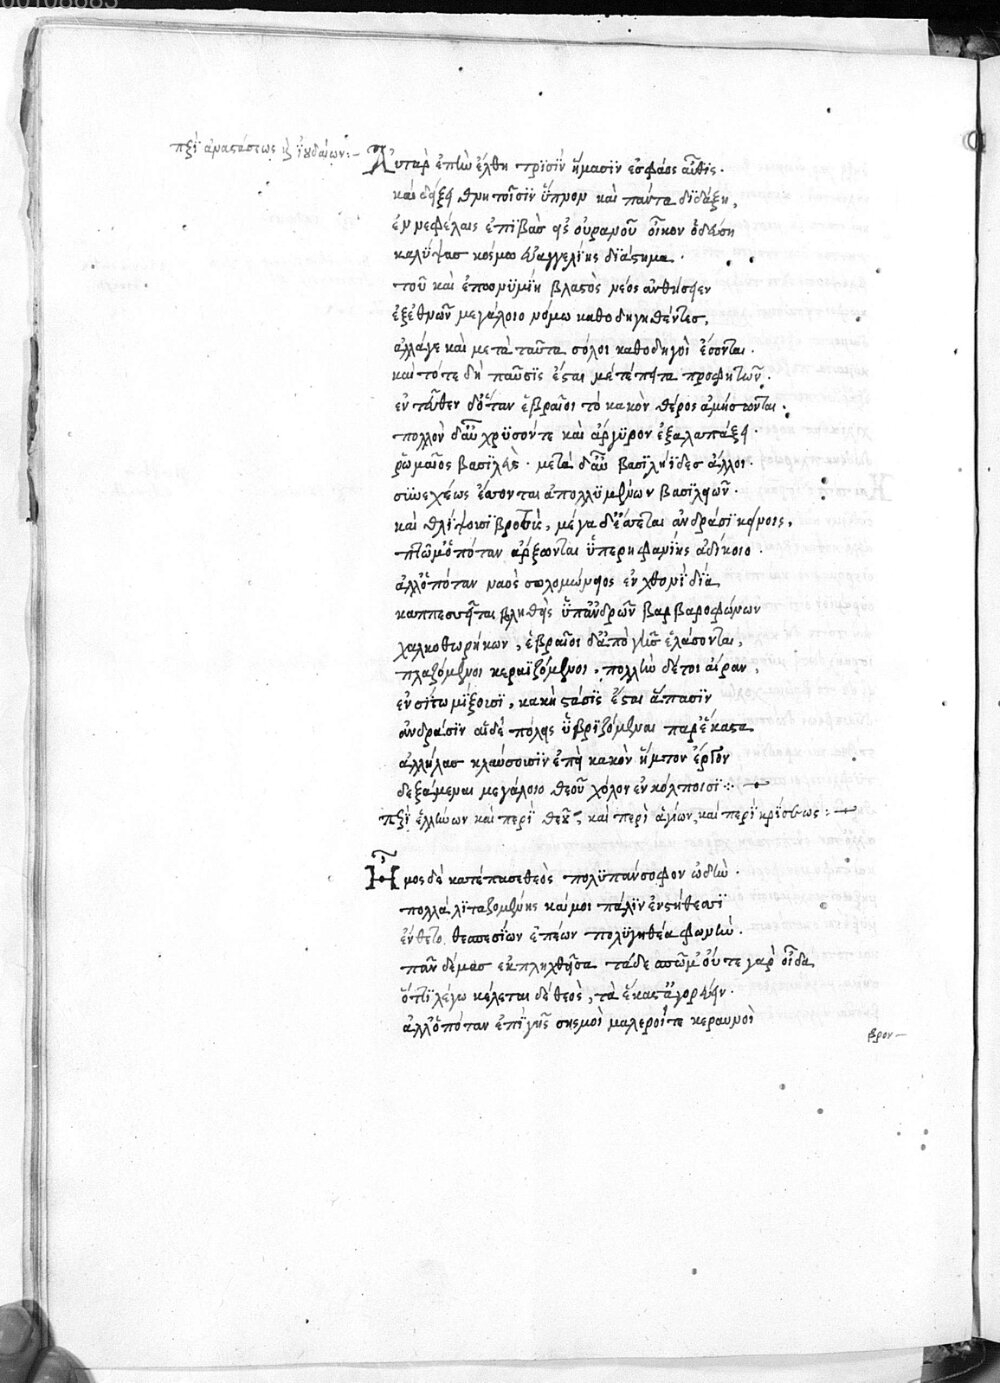 00108685
περὶ ἀναστάσεως κ ἰουδαίων:—
Αὐτὰρ ἐπὴν ἔλθη τρισὶν ἤμασιν ἐσφάος αὖθις.
καὶ δείξει θνητοῖσιν ὕπνον καὶ πάντα διδάξη,
ἐν νεφέλαις ἐπιβὰς εἰς οὐρανοῦ οἶκον ὁδεύση
καλύψας κόσμω εὐαγγελίης διάθημα.
τοῦ καὶ ἐπωνυμίη βλαστὸς νέος ἀνθήσειεν
ἐξ ἐθνῶν μεγάλοιο νόμω καθοδηγηθέντες,
ἀλλάγε καὶ μετὰ ταῦτα σόλοι καθοδηγοὶ ἔσονται.
καὶ τότε δὴ παῦσις ἔσται μετέπειτα προφητῶν.
ἐντεῦθεν δ' ὅταν ἑβραῖοι τὸ κακὸν θέρος ἀμήσωνται.
πολλὸν δ' αὖ χρυσόντε καὶ ἄργυρον ἐξαλαπάξει.
ῥωμαῖος βασιλεὺς. μετὰ δ' αὖ βασιληίδες ἄλλοι.
συνεχέως ἔσονται ἀπολλυμένων βασιλειῶν.
καὶ θλίψουσι βροτοὺς, μέγα δ' ἔσσεται ἀνδράσι κείνοις,
πτῶμ' ὁπόταν ἄρξωνται ὑπερηφανίης ἀδίκοιο.
ἀλλ' ὁπόταν ναὸς σολομώνειος ἐν χθονὶ δία
καππεσεῖται βληθεὶς ὑπ' ἀνδρῶν βαρβαροφώνων
χαλκοθωρήκων, ἑβραῖοι δ' ἀπὸ γῆς ἐλάσονται,
πλαζόμενοι κεραϊζόμενοι. πολλὴν δέ τοι αἶραν,
ἐν σίτω μίξουσι, κακὴ στάσις ἔσται ἅπασιν
ἀνδράσιν αἱ δὲ πόλεις ὑβριζόμεναι παρ' ἕκαστα
ἀλλήλας κλαύσουσιν ἐπεὶ κακὸν ἤλιτον ἔργον
δεξάμεναι μεγάλοιο θεοῦ χόλον ἐν κόλποισι:
περὶ ἑλλήνων καὶ περὶ θεοῦ, καὶ περὶ ἁγίων, καὶ περὶ κρίσεως:
Ἦμος δὲ κατέπαυσε θεὸς πολυπάνσοφον ὠδὴν.
πολλὰ λιταζομένης καί μοι πάλιν ἐν στήθεσσι
ἔνθετο θεσπεσίων ἐπέων πολυγηθέα φωνὴν.
πᾶν δέμας ἐκπληχθεῖσα τάδε ἕσπομ' οὔτε γὰρ οἶδα
ὅττι λέγω κέλεται δὲ θεὸς, τὰ ἕκαστ' ἀγορεύειν.
ἀλλ' ὁπόταν ἐπὶ γῆς σεισμοὶ μαλεροί τε κεραυνοὶ
βρον—